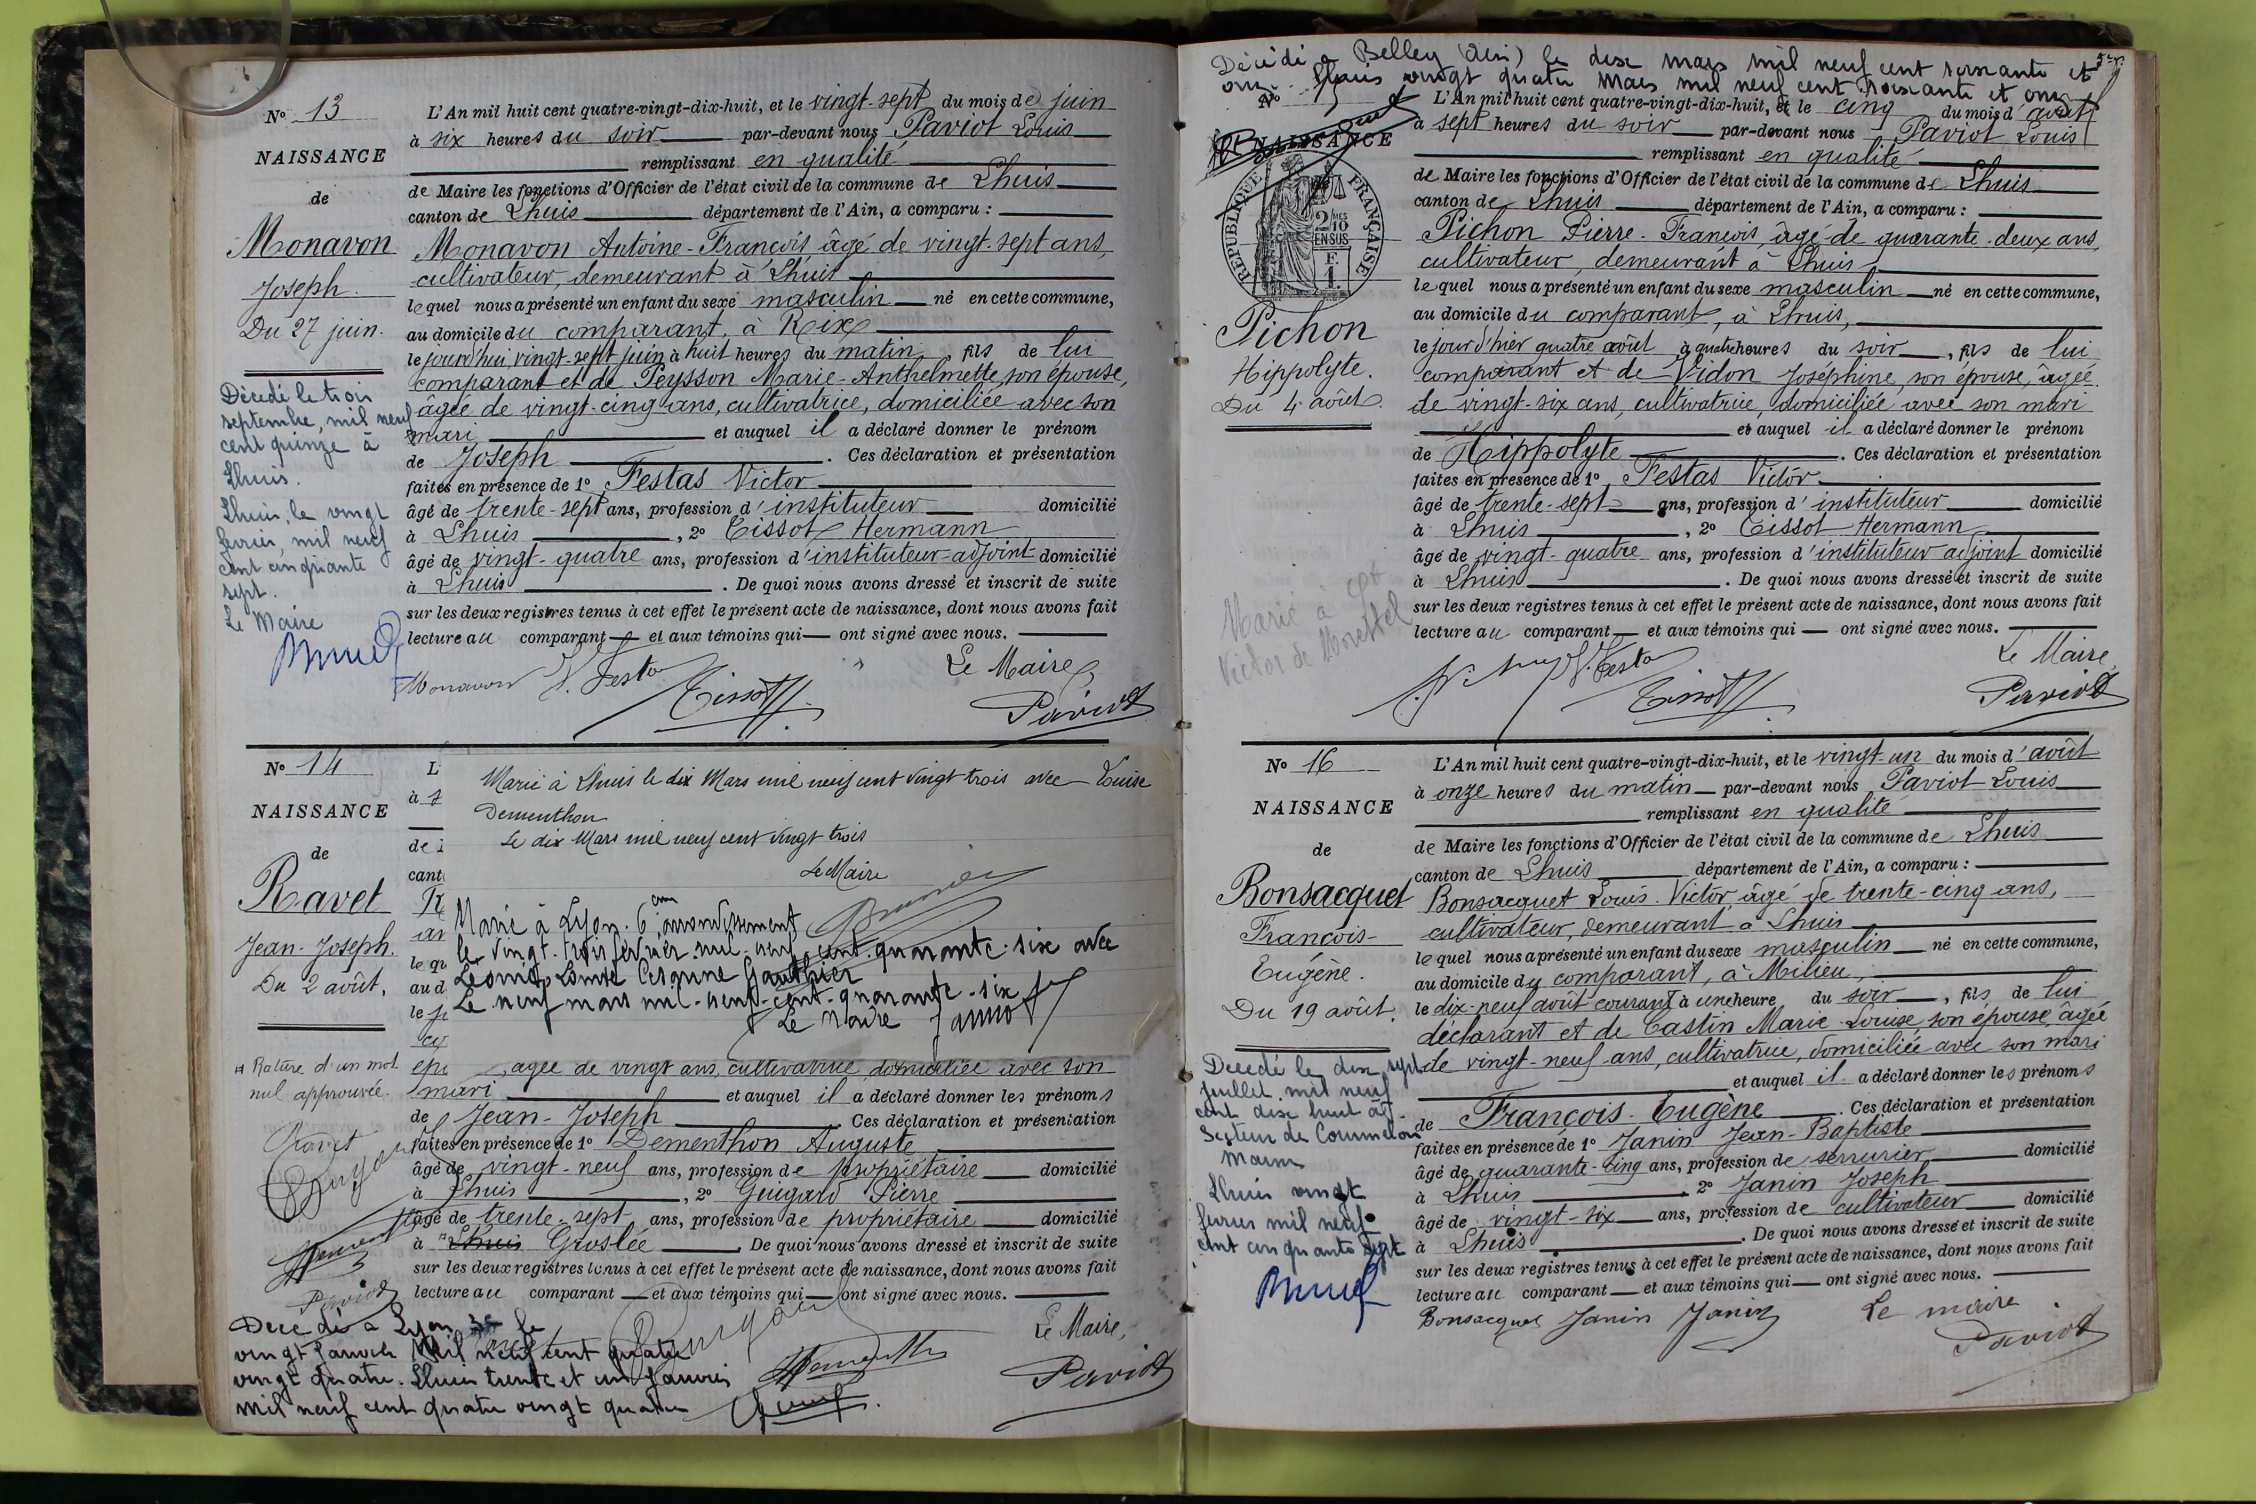 N° 13
NAISSANCE
de
Monavon
Joseph.
Du 27 juin.
Décédé le trois
septembre, mil neuf
cent quinze à
Lhuis.
Lhuis, le vingt
février, mil neuf
cent cinquante
sept.
Le Maire
L'An mil huit cent quatre-vingt-dix-huit, et le vingt-sept du mois de juin
à six heures du soir par-devant nous Paviot Louis
remplissant en qualité
de Maire les fonctions d'Officier de l'état civil de la commune de Lhuis
canton de Lhuis département de l'Ain, a comparu :
Monavon Antoine-François, âgé de vingt-sept ans,
cultivateur, demeurant à Lhuis
lequel nous a présenté un enfant du sexe masculin né en cette commune,
au domicile du comparant, à Rix
le jourd'hui vingt-sept juin à huit heures du matin, fils de lui
comparant et de Peysson Marie-Anthelmette, son épouse,
âgée de vingt-cinq ans, cultivatrice, domiciliée avec son
mari et auquel il a déclaré donner le prénom
de Joseph . Ces déclaration et présentation
faites en présence de 1° Festas Victor
âgé de trente-sept ans, profession d'instituteur domicilié
à Lhuis , 2° Tissot Hermann
âgé de vingt-quatre ans, profession d'instituteur-adjoint domicilié
à Lhuis . De quoi nous avons dressé et inscrit de suite
sur les deux registres tenus à cet effet le présent acte de naissance, dont nous avons fait
lecture au comparant et aux témoins qui ont signé avec nous.
Le Maire
Monavon V. Festas Tissot Paviot
N° 14
NAISSANCE
de
Ravet
Jean-Joseph.
Du 2 août.
Rature d'un mot
nul approuvée.
Ravet
Paviot
L
à s
de
cant
le qu
au d
le j
épo
Marié à Lhuis le dix Mars mil neuf cent vingt trois avec Louise
Dementhon
Le dix Mars mil neuf cent vingt trois
Le Maire
Marié à Lyon 6em arrondissement
le vingt-trois février mil-neuf-cent-quarante-six avec
Léonie Louise Césarine Gauthier
Le neuf mars mil-neuf-cent-quarante-six
Le Maire
âgée de vingt ans, cultivatrice, domiciliée avec son
mari et auquel il a déclaré donner les prénoms
de Jean-Joseph Ces déclaration et présentation
faites en présence de 1° Dementhon Auguste
âgé de vingt-neuf ans, profession de propriétaire domicilié
à Lhuis , 2° Guigard Pierre
âgé de trente-sept ans, profession de propriétaire domicilié
à Lhuis Groslée . De quoi nous avons dressé et inscrit de suite
sur les deux registres tenus à cet effet le présent acte de naissance, dont nous avons fait
lecture au comparant et aux témoins qui ont signé avec nous.
Le Maire,
Paviot
Décédé à Lyon 3e le
vingt janvier mil neuf cent quatre
vingt quatre. Lhuis trente et un janvier
mil neuf cent quatre vingt quatre
Décédé à Belley (Ain) le dix mars mil neuf cent soixante et
onze. Lhuis vingt quatre mars mil neuf cent soixante et onze
N°
NAISSANCE
RÉPUBLIQUE FRANÇAISE
2/10 MES
EN SUS
F.
1.
Pichon
Hippolyte.
Du 4 août.
Marié à
L'An mil huit cent quatre-vingt-dix-huit, et le cinq du mois d'août
à sept heures du soir par-devant nous Paviot Louis
remplissant en qualité
de Maire les fonctions d'Officier de l'état civil de la commune de Lhuis
canton de Lhuis département de l'Ain, a comparu :
Pichon Pierre-François, âgé de quarante-deux ans,
cultivateur, demeurant à Lhuis
lequel nous a présenté un enfant du sexe masculin né en cette commune,
au domicile du comparant, à Lhuis,
le jour d'hier quatre août à quatre heures du soir, fils de lui
comparant et de Vidon Joséphine, son épouse, âgée
de vingt-six ans, cultivatrice, domiciliée avec son mari
et auquel il a déclaré donner le prénom
de Hippolyte . Ces déclaration et présentation
faites en présence de 1° Festas Victor
âgé de trente-sept ans, profession d'instituteur domicilié
à Lhuis , 2° Tissot Hermann
âgé de vingt-quatre ans, profession d'instituteur adjoint domicilié
à Lhuis . De quoi nous avons dressé et inscrit de suite
sur les deux registres tenus à cet effet le présent acte de naissance, dont nous avons fait
lecture au comparant et aux témoins qui ont signé avec nous.
Le Maire,
V. Festas Tissot Paviot
N° 16
NAISSANCE
de
Bonsacquet
François-
Eugène.
Du 19 août.
Décédé le dix sept
juillet mil neuf
cent dix huit
Secteur de Courmelon
Marne
Lhuis vingt
février mil neuf
cent cinquante sept
L'An mil huit cent quatre-vingt-dix-huit, et le vingt-un du mois d'août
à onze heures du matin par-devant nous Paviot Louis
remplissant en qualité
de Maire les fonctions d'Officier de l'état civil de la commune de Lhuis
canton de Lhuis département de l'Ain, a comparu :
Bonsacquet Louis-Victor, âgé de trente-cinq ans,
cultivateur, demeurant à Lhuis
lequel nous a présenté un enfant du sexe masculin né en cette commune,
au domicile du comparant, à Milieu,
le dix-neuf août courant à une heure du soir, fils de lui
déclarant et de Castin Marie-Louise, son épouse, âgée
de vingt-neuf ans, cultivatrice, domiciliée avec son mari
et auquel il a déclaré donner les prénoms
de François-Eugène . Ces déclaration et présentation
faites en présence de 1° Janin Jean-Baptiste
âgé de quarante-cinq ans, profession de serrurier domicilié
à Lhuis 2° Janin Joseph
âgé de vingt-six ans, profession de cultivateur domicilié
à Lhuis . De quoi nous avons dressé et inscrit de suite
sur les deux registres tenus à cet effet le présent acte de naissance, dont nous avons fait
lecture au comparant et aux témoins qui ont signé avec nous.
Bonsacquet Janin Janin Le maire
Paviot